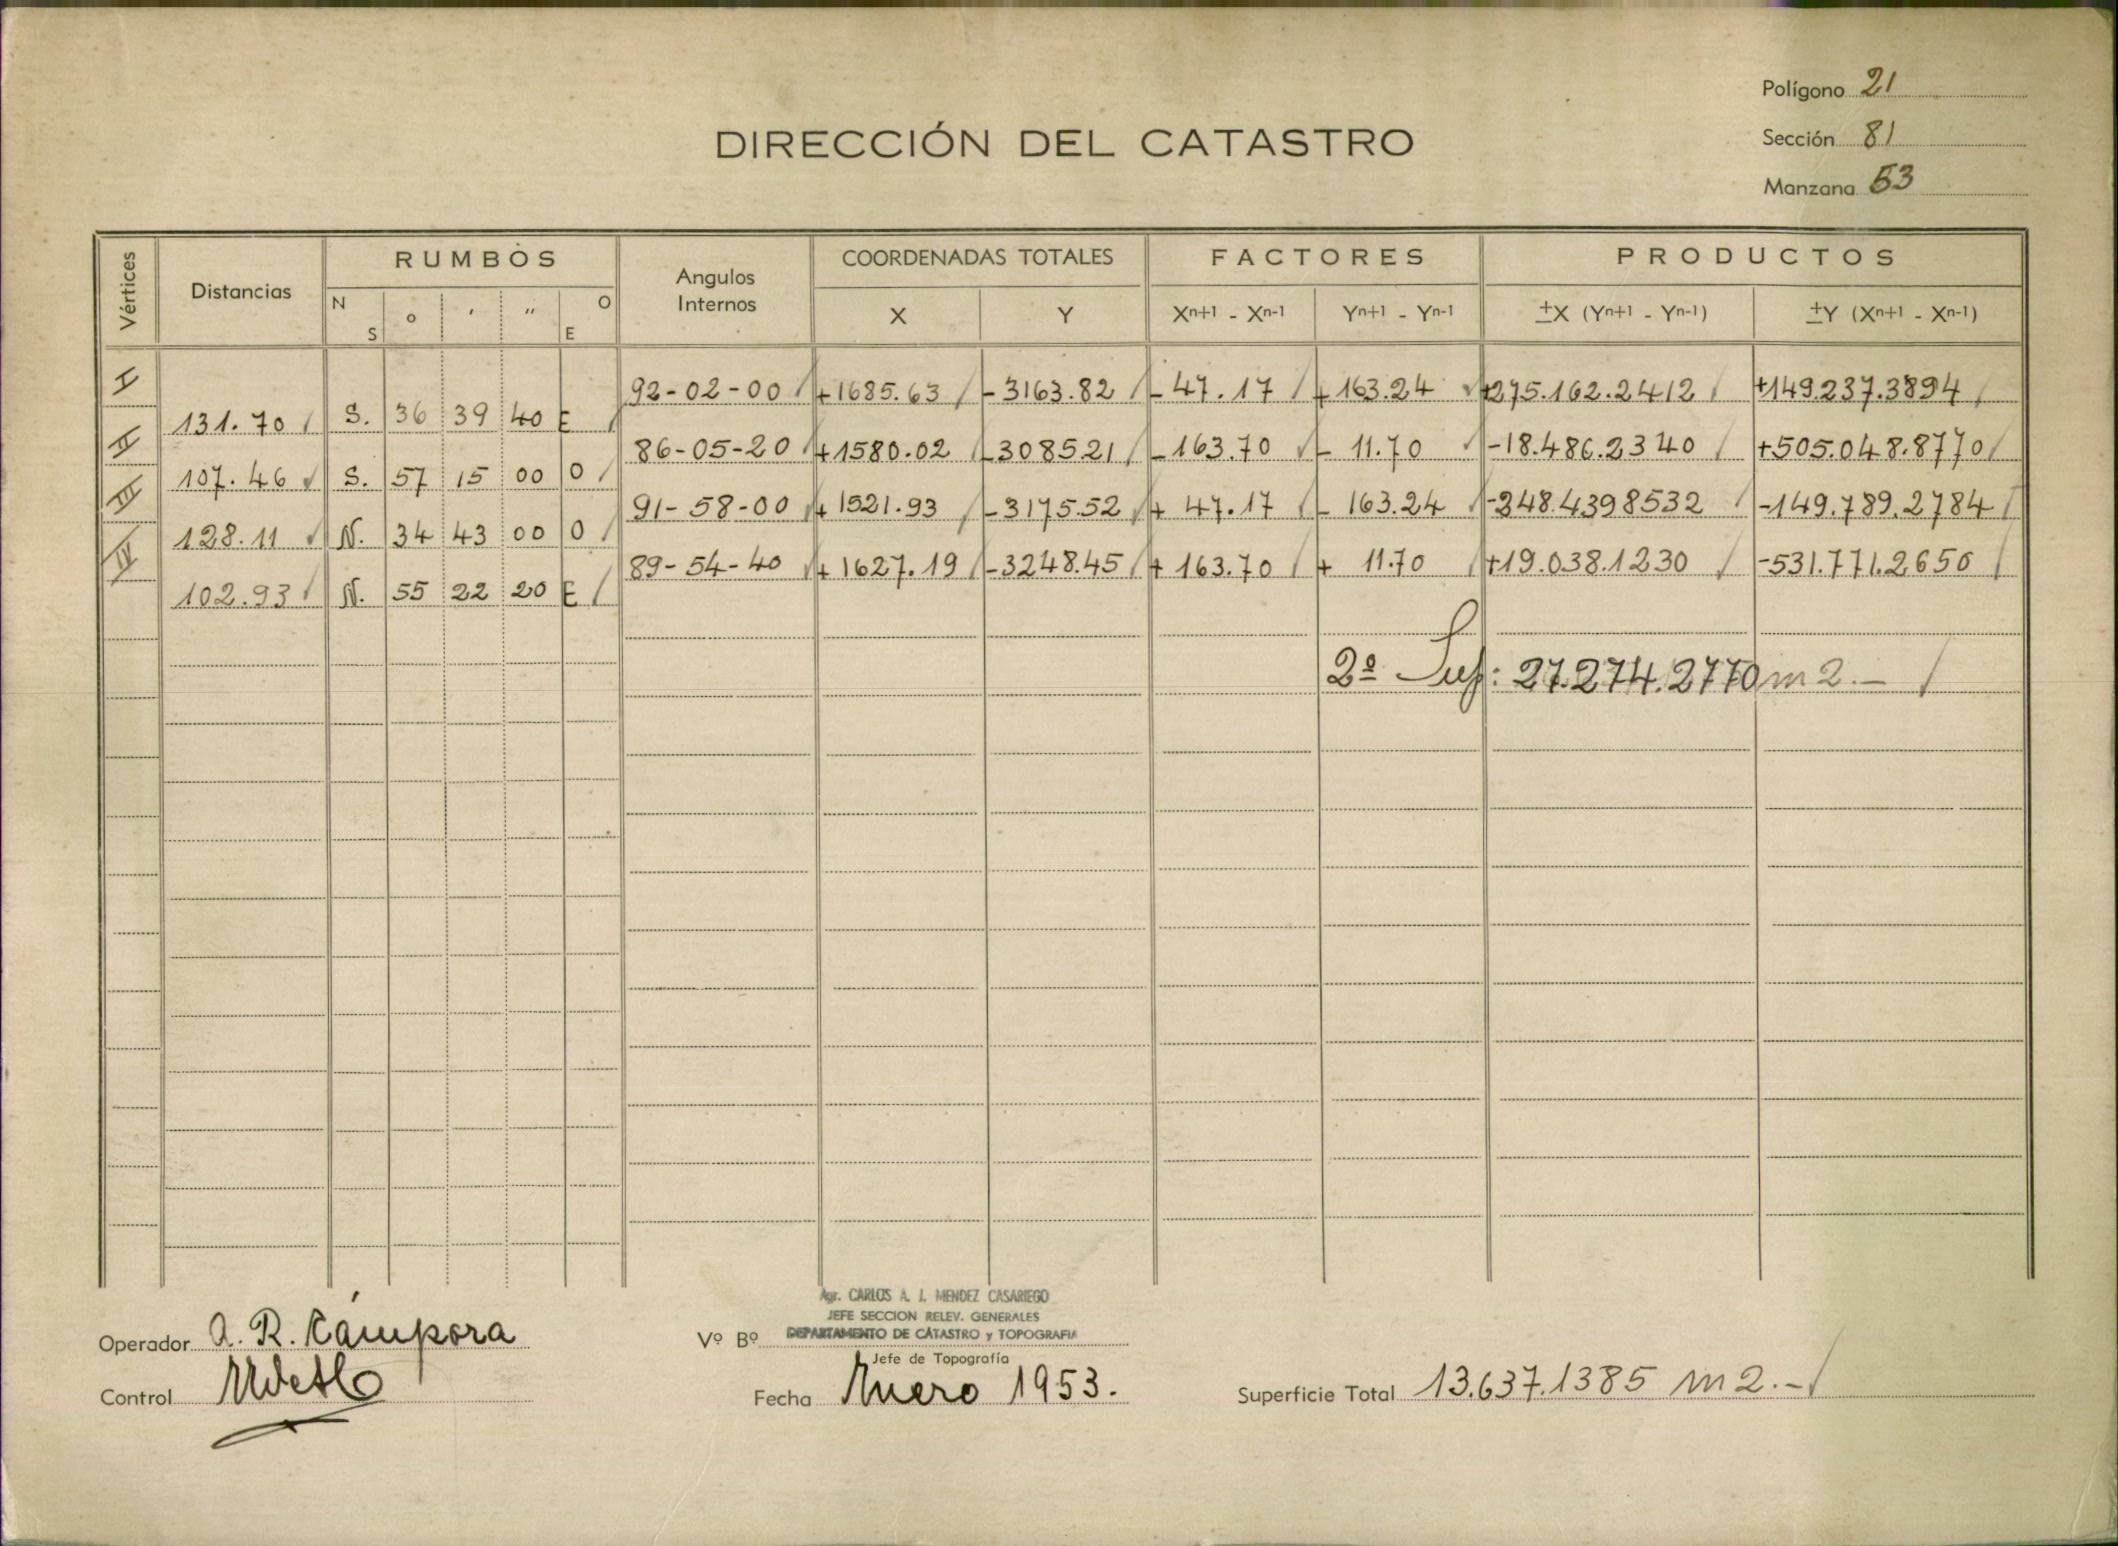 Polígono 21
DIRECCIÓN DEL CATASTRO
Sección 81
Manzana 53
Vértices Distancias RUMBOS Angulos Internos COORDENADAS TOTALES FACTORES PRODUCTOS
N S o ' " O E X Y Xn+1 - Xn-1 Yn+1 - Yn-1 ±X (Yn+1 - Yn-1) ±Y (Xn+1 - Xn-1)
I 92-02-00 +1685.63 -3163.82 -47.17 +163.24 +275.162.2412 +149.237.3894
131.70 S. 36 39 40 E
II 86-05-20 +1580.02 -3085.21 -163.70 - 11.70 -18.486.2340 +505.048.8770
107.46 S. 57 15 00 O
III 91-58-00 +1521.93 -3175.52 + 47.17 - 163.24 -248.439.8532 -149.789.2784
128.11 N. 34 43 00 O
IV 89-54-40 +1627.19 -3248.45 + 163.70 + 11.70 +19.038.1230 -531.771.2650
102.93 N. 55 22 20 E
2º Sup: 27.274.2770 m2.-
Agr. CARLOS A. J. MENDEZ CASARIEGO
JEFE SECCION RELEV. GENERALES
DEPARTAMENTO DE CATASTRO y TOPOGRAFIA
Operador A. R. Cámpora Vº Bº
Jefe de Topografía
Control Fecha Enero 1953. Superficie Total 13.637.1385 m2.-